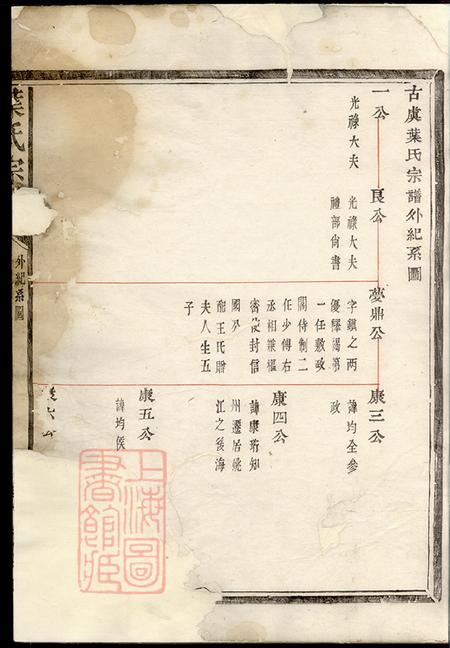 古虞葉氏宗譜外紀系圖
一公
光祿大夫
良公
光祿大夫
禮部尚書
夢鼎公
字鎮之兩
優釋褐第
一任敷政
閣侍制二
任少傅右
丞相兼樞
密使封信
國公
配王氏贈
夫人生五
子
康三公
諱均全參
政
康四公
諱康珩知
州遷居姚
江之後海
康五公
諱均俟
葉氏宗
外紀系圖
上海圖
書館藏